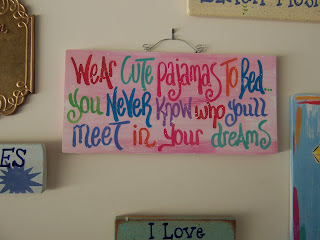 WeAr CUTe pajamas To Bed...
you NeVeR KNow who you'll
meeT in your dReAmS
ES
I Love